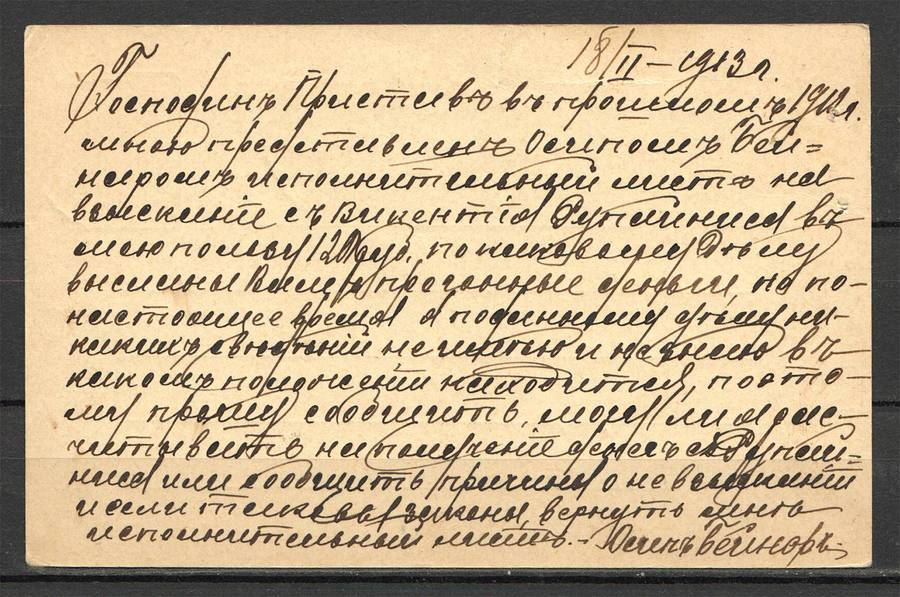 18/II – 1913 г.
Господинъ Приставъ въ прошломъ 1912 г.
мною представленъ Осипомъ Бей=
наромъ исполнительный листъ на
взысканіе съ Викентія Рупейниса въ
мою пользу 120 руб., по каковому дѣлу
высланы Вамъ прогонные деньги, но по-
настоящее время я по данному дѣлу ни-
какихъ свѣдѣній не имѣю и не знаю въ
какомъ положеніи находится, поэто-
му прошу сообщить, могу ли я рас-
читывать на полученіе денегъ съ Рупей=
ниса или сообщить причины о невзысканіи
и если таковы законы, вернуть мнѣ
исполнительный листъ. – Осипъ Бейнаръ